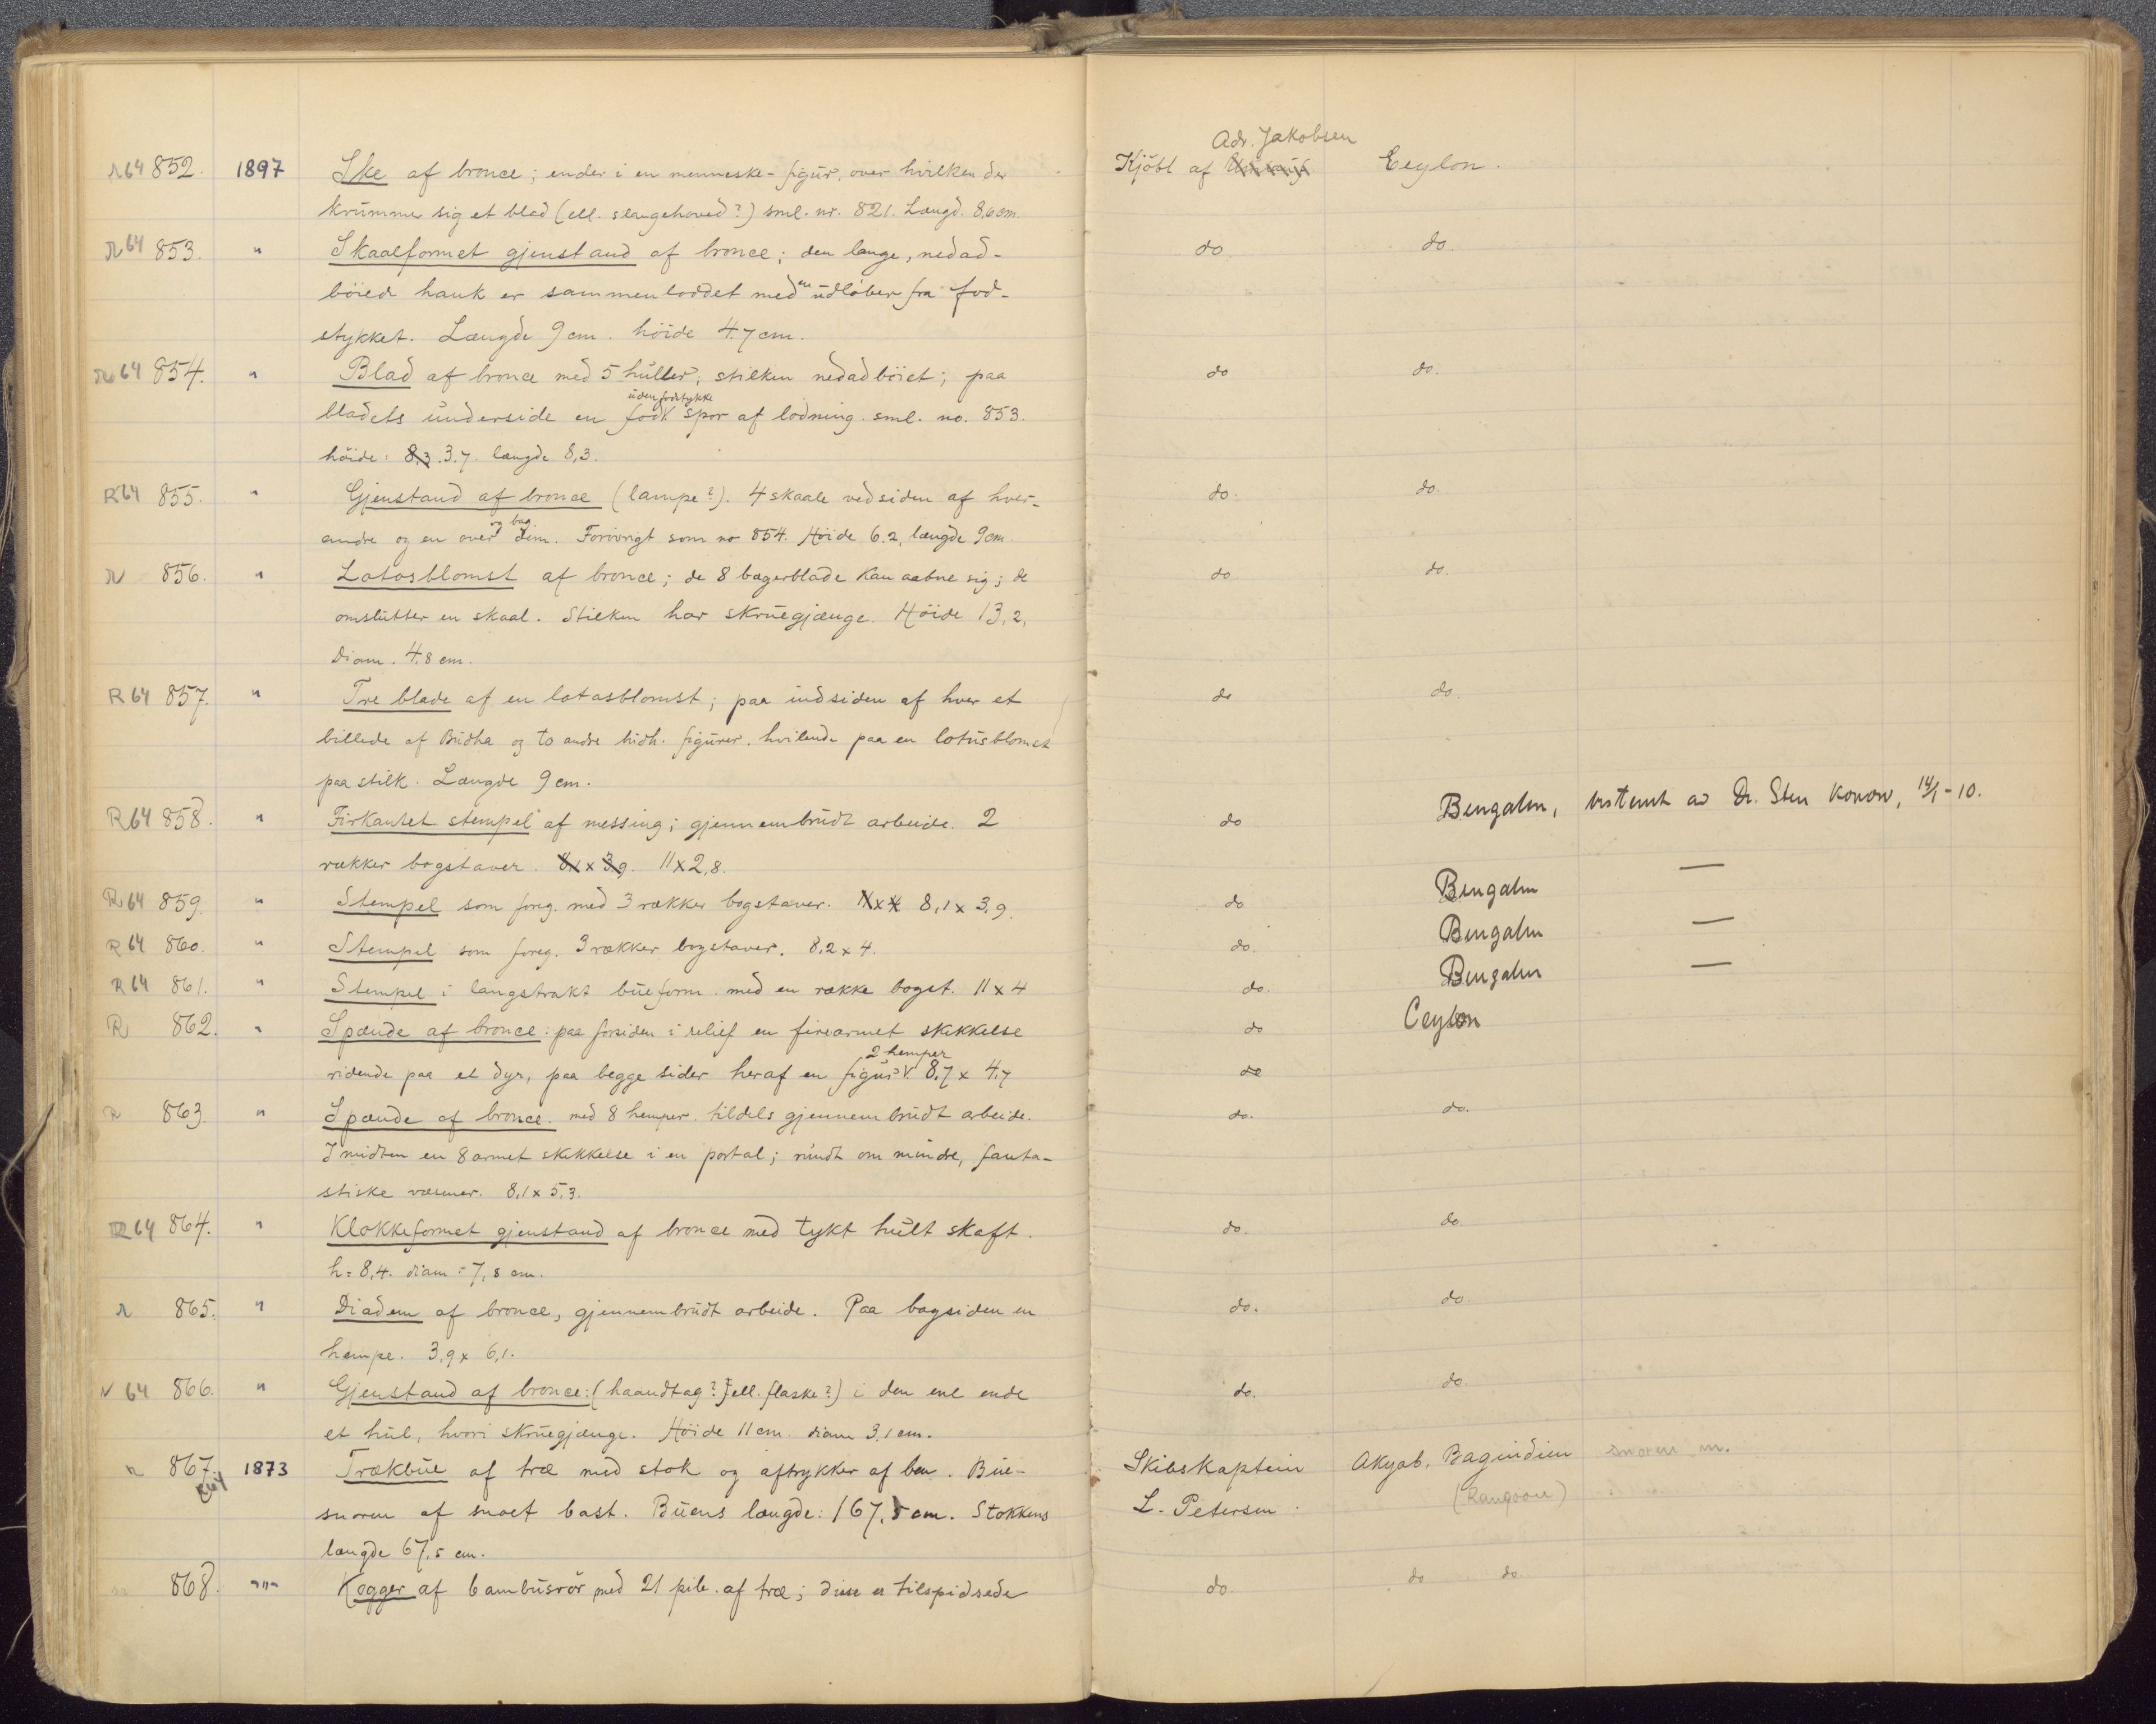 Adr. Jakobsen
R64 852. 1897 Ske af bronce; ender i en menneske-figur, over hvilken der Kjöbt af Ceylon.
krummer sig et blad (ell. slangehoved?) sml. nr. 821. Længd. 8,6 cm.
R64 853. " Skaalformet gjenstand af bronce; den lange, nedad- do do.
böied hank er sammenloddet med en udlöber fra fod-
stykket. Længde 9 cm. höide 4.7 cm.
R64 854. " Blad af bronce med 5 huller; stilken nedadböiet; paa do do.
uden fodstykke
bladets underside en fod V. spor af lodning. sml. no. 853.
höide: 8,3. 3.7. længde 8,3.
R64 855. " Gjenstand af bronce (lampe?). 4 skaale vedsiden af hver- do. do.
og bag
andre og en over dem. Forövrigt som no 854. Höide 6.2, længde 9 cm.
R 856. " Lotosblomst af bronce; de 8 bægerblade kan aabne sig; de do do.
omslutter en skaal. Stilken har skruegjænge. Höide 13,2,
diam. 4.8 cm.
R64 857. " Tre blade af en lotosblomst; paa indsiden af hver et do do.
billede af Budha og to andre budh. figurer. hvilende paa en lotusblomst
paa stilk. Længde 9 cm.
R64 858. " Firkantet stempel af messing; gjennembrudt arbeide. 2 do Bengalen, bestemt av Dr. Sten Konow, 14/1-10.
rækker bogstaver. 8,1 x 3,9. 11x2,8.
R64 859. " Stempel som foreg. med 3 rækker bogstaver. 11x4 8,1 x 3,9. do Bengalen —
R64 860. " Stempel som foreg. 3 rækker bogstaver. 8,2 x 4. do. Bengalen —
R64 861. " Stempel i langstrakt bueform. med en række bogst. 11x4 do. Bengalen —
R 862. " Spænde af bronce: paa forsiden i relief en firearmet skikkelse do Ceylon
2 hemper
ridende paa et dyr, paa begge sider heraf en figur V. 8,7 x 4,7 do
R 863. " Spænde af bronce. med 8 hemper. tildels gjennembrudt arbeide. do. do.
I midten en 8armet skikkelse i en portal; rundt om mindre, fanta-
stiske væsener. 8,1 x 5,3.
R64 864. " Klokkeformet gjenstand af bronce med tykt hult skaft. do. do
h = 8,4. diam = 7,8 cm.
R 865. " Diadem af bronce, gjennembrudt arbeide. Paa bagsiden en do. do
hempe. 3,9 x 6,1.
R 64 866. " Gjenstand af bronce: (haandtag? ell. flaske?) i den ene ende do. do.
et hul, hvori skruegjænge. Höide 11 cm. diam 3,1 cm.
R 867. 1873 Trækbue af træ med stok og aftrykker af ben. Bue- Skibskaptein Akyab, Bagindien snoren m.
R64
snoren af snoet bast. Buens længde: 167,5 cm. Stokkens L. Petersen. (Rangoon)
længde 67,5 cm.
868. "" Kogger af bambusrör med 21 pile af træ; disse er tilspidsede do. do do.